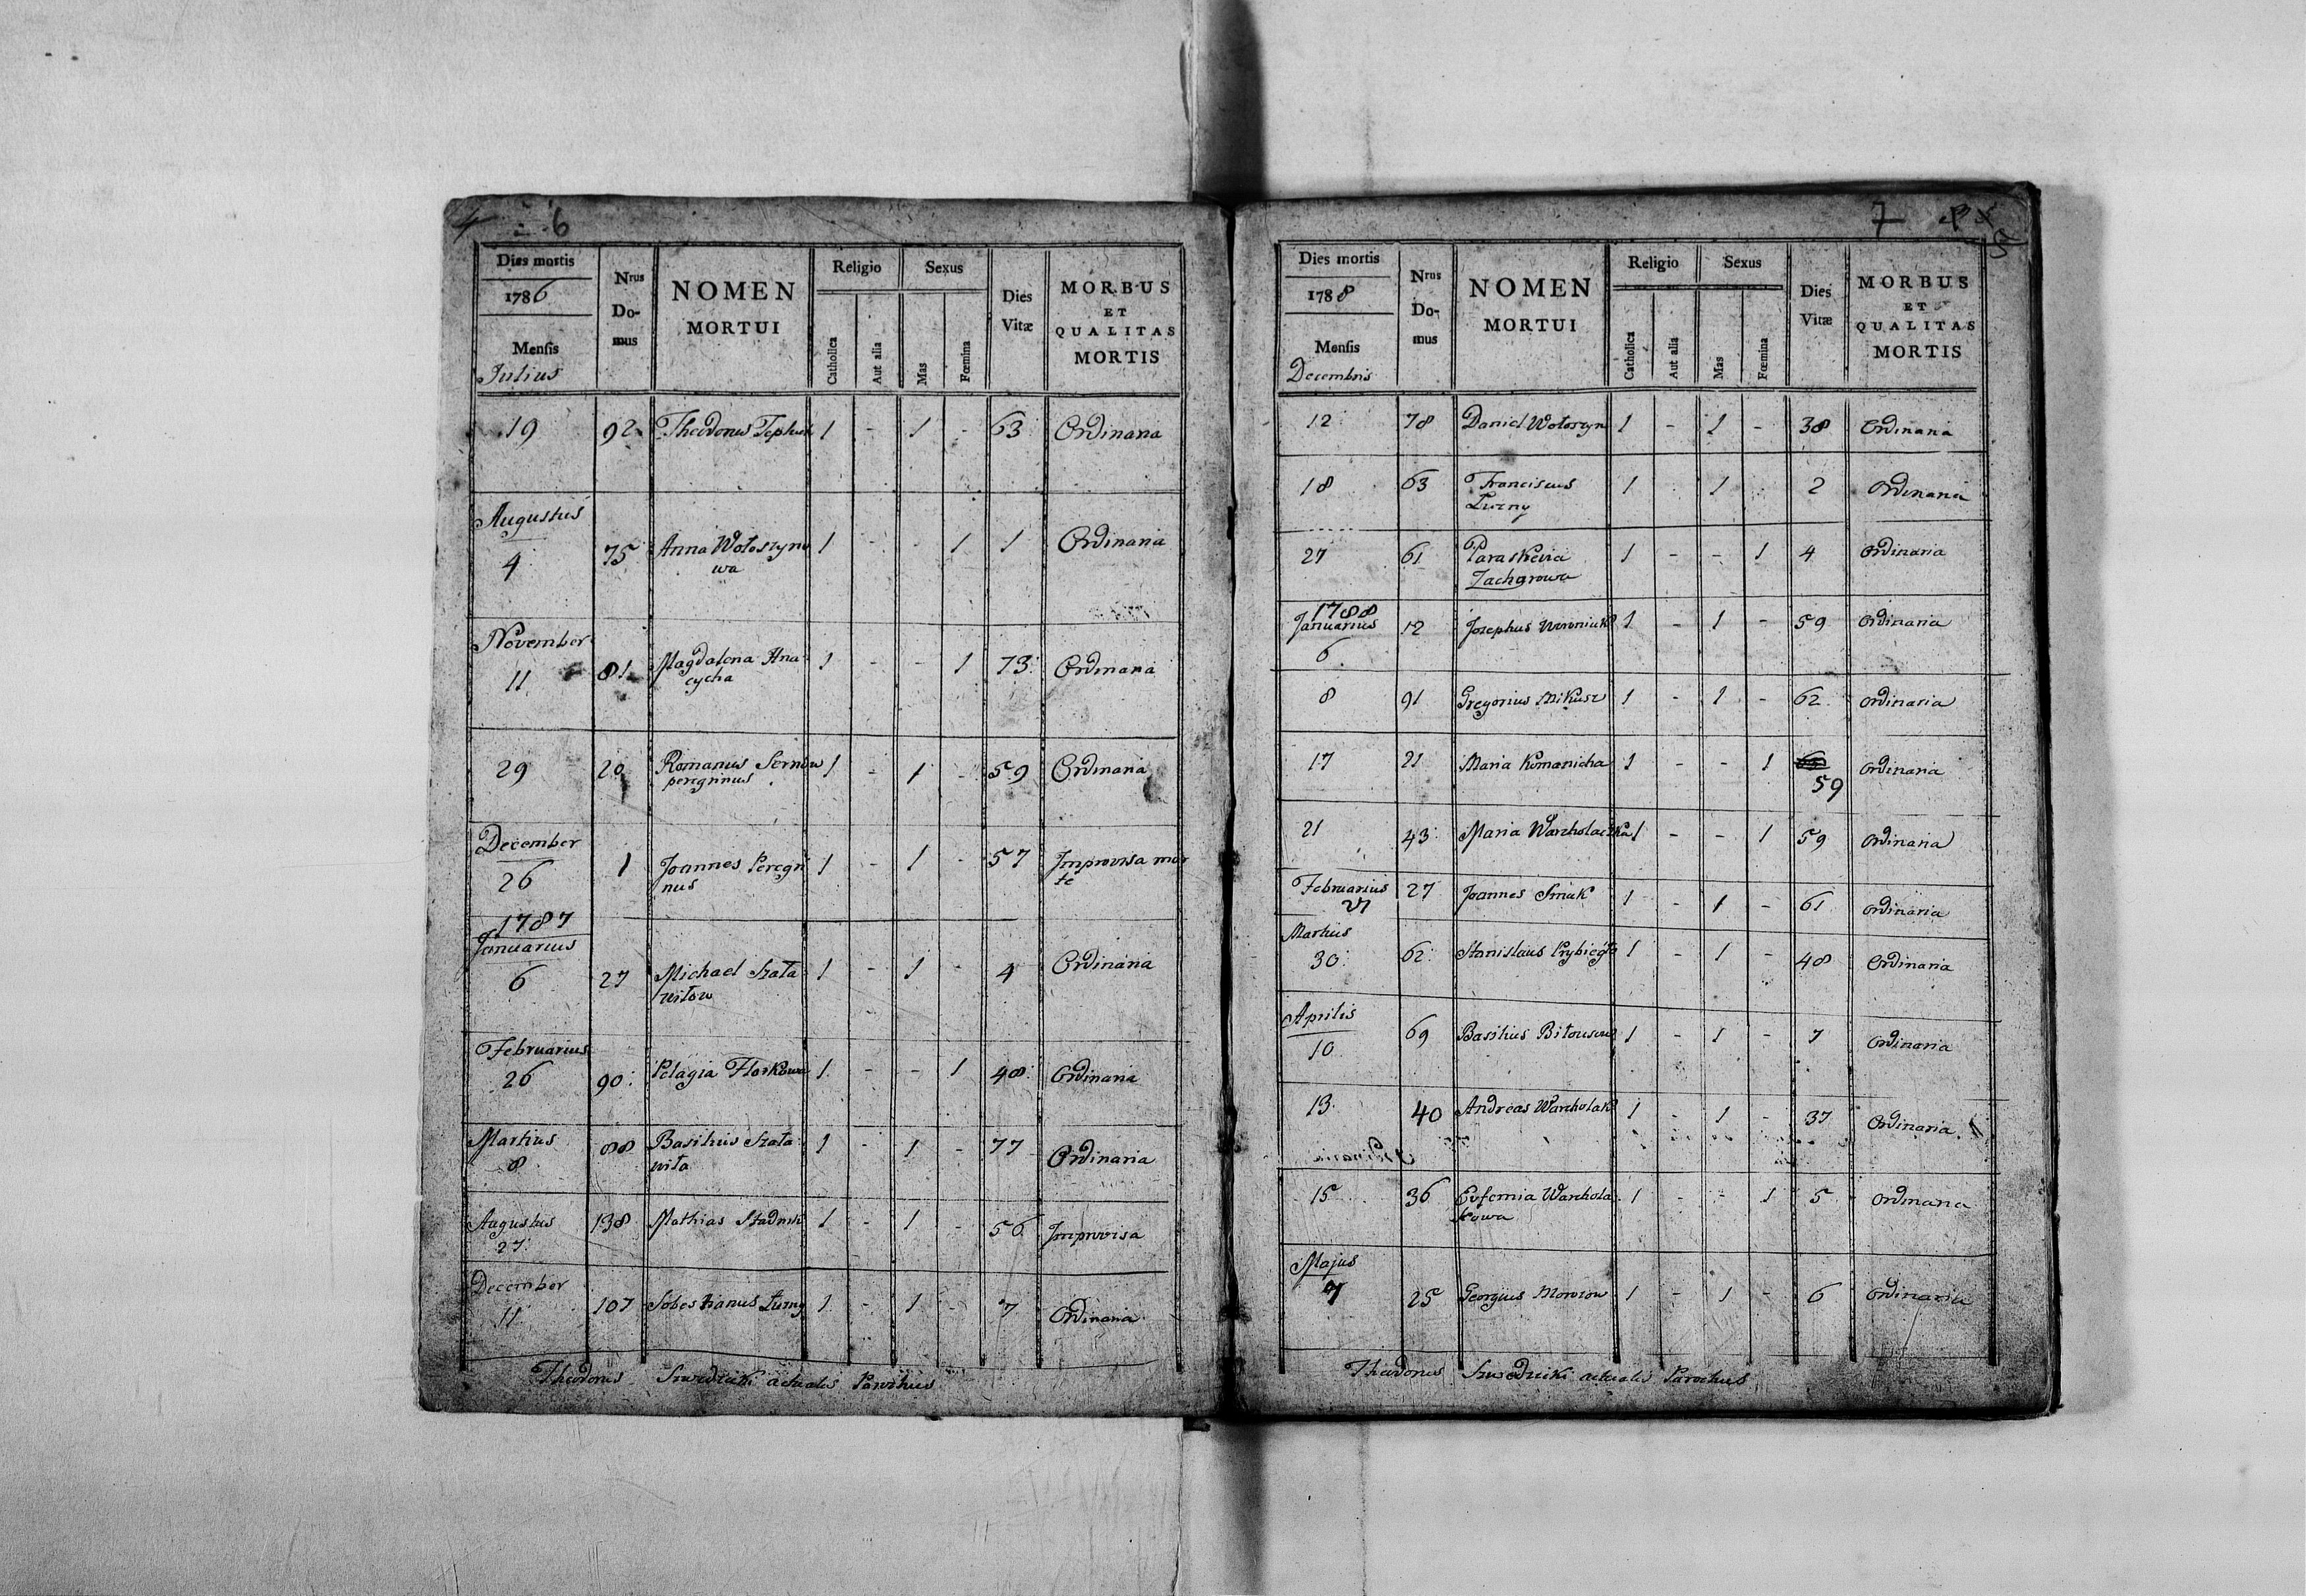 4 6
Dies mortis
1786
Mensis
Julius
Nrus Domus
NOMEN MORTUI
Religio
Catholica
Aut alia
Sexus
Mas
Fœmina
Dies Vitæ
MORBUS ET QUALITAS MORTIS
19 92 Theodorus 1 - 1 - 63 Ordinaria
Augustus
4 75 Anna Wołoszyno 1 - - 1 1 Ordinaria
wa
November
11 81 Magdalena Hna 1 - - 1 73 Ordinaria
cycha
29 20 Romanus 1 - 1 - 59 Ordinaria
peregrinus
December
26 1 Joannes Peregri 1 - 1 - 57 Improvisa mor
nus te
1787
Januarius
6 27 Michael Szała 1 - 1 - 4 Ordinaria
witow
Februarius
26 90 Pelagia Florkowa 1 - - 1 48 Ordinaria
Martius
8 88 Basilius Szała 1 - 1 - 77 Ordinaria
wita
Augustus
27 138 Mathias 1 - 1 - 56 Improvisa
December
11 107 Sobestianus Łuzny 1 - 1 - 7 Ordinaria
Theodorus Szwedzicki actualis Parochus
7 5
Dies mortis
1788
Mensis
Decembris
Nrus Domus
NOMEN MORTUI
Religio
Catholica
Aut alia
Sexus
Mas
Fœmina
Dies Vitæ
MORBUS ET QUALITAS MORTIS
12 78 Daniel Wołoszyn 1 - 1 - 38 Ordinaria
18 63 Franciscus 1 1 2 Ordinaria
Łuzny
27 61 Paraskevia 1 - - 1 4 Ordinaria
Zachgrowa
1788
Januarius 12 Josephus Woroniak 1 - 1 - 59 Ordinaria
6
8 91 Gregorius Mikusz 1 - 1 - 62 Ordinaria
17 21 Maria Komanicha 1 - - 1 59 Ordinaria
21 43 Maria Warcholaczka 1 - - 1 59 Ordinaria
Februarius 27 Joannes Smiak 1 - 1 - 61 Ordinaria
27
Martius
30 62 Stanislaus Przybiegła 1 - 1 - 48 Ordinaria
Aprilis
10 69 Basilius 1 - 1 - 7 Ordinaria
13 40 Andreas Warcholak 1 - 1 - 37 Ordinaria
15 36 Eufemia Warchola 1 - - 1 5 Ordinaria
kowa
Majus
7 25 Georgius 1 - 1 - 6 Ordinaria
Theodorus Szwedzicki actualis Parochus